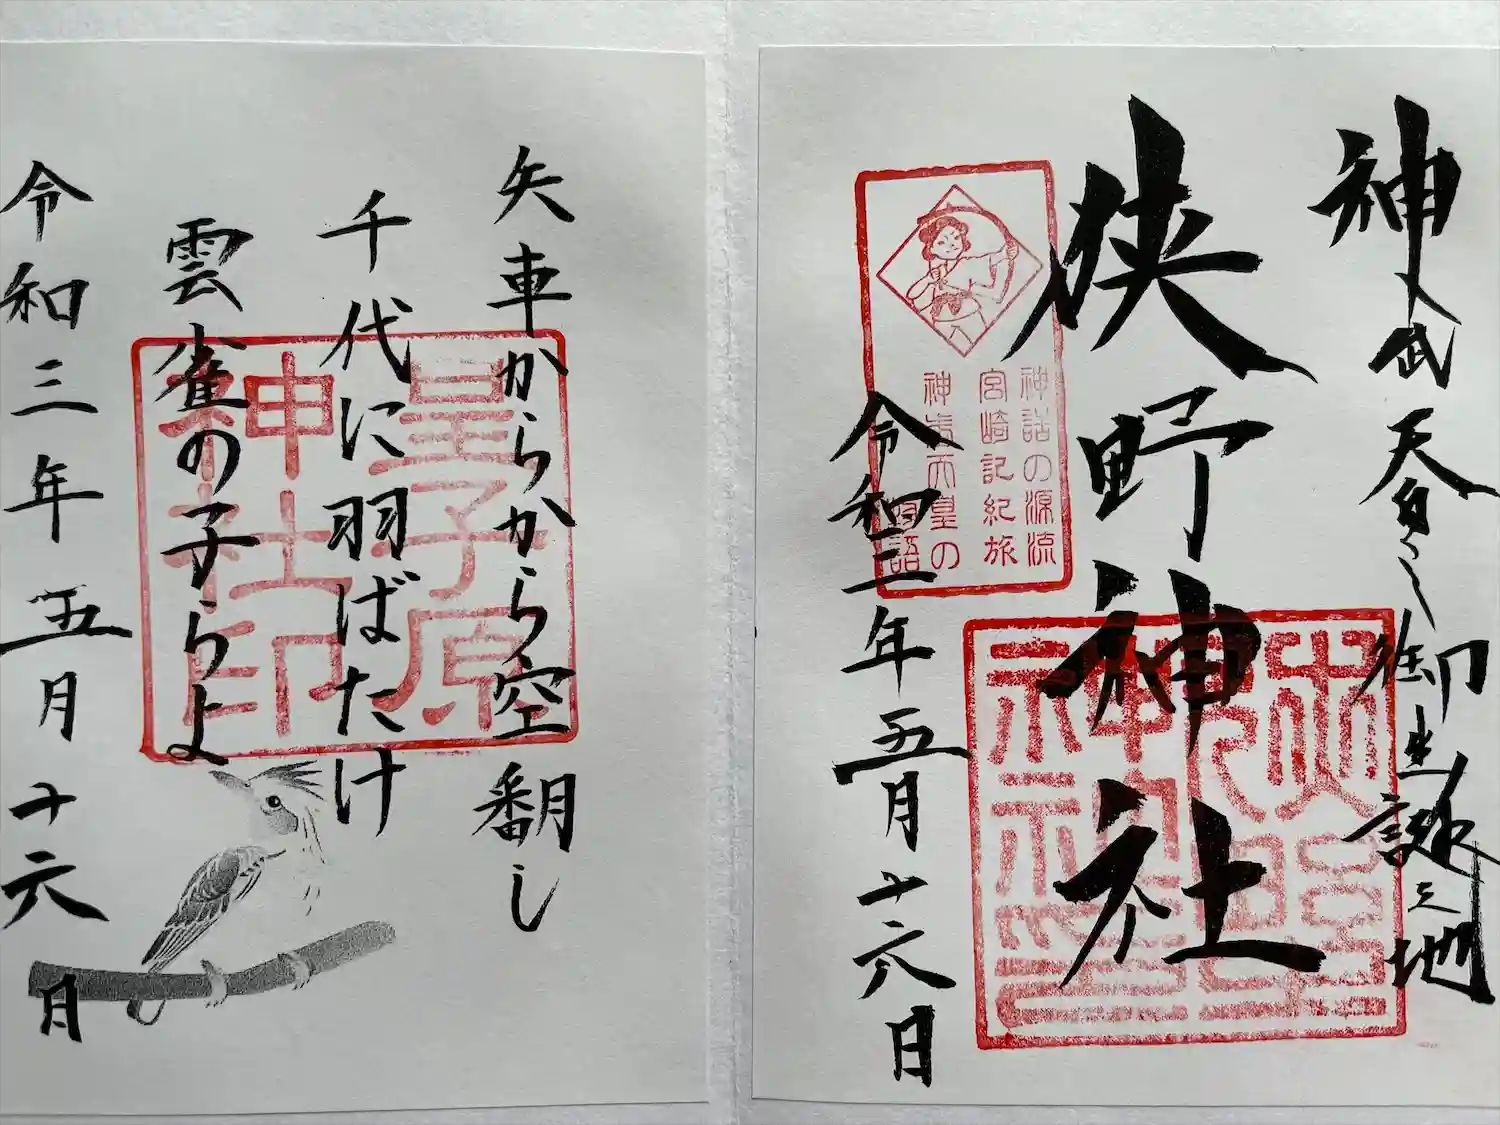 神武天皇之御生誕之地
狭野神社
神話の源流
宮崎記紀旅
神武天皇の
物語
令和三年五月十六日
矢車からから空翻し
千代に羽ばたけ
雲雀の子らよ
皇子原
神社印
令和三年五月十六日